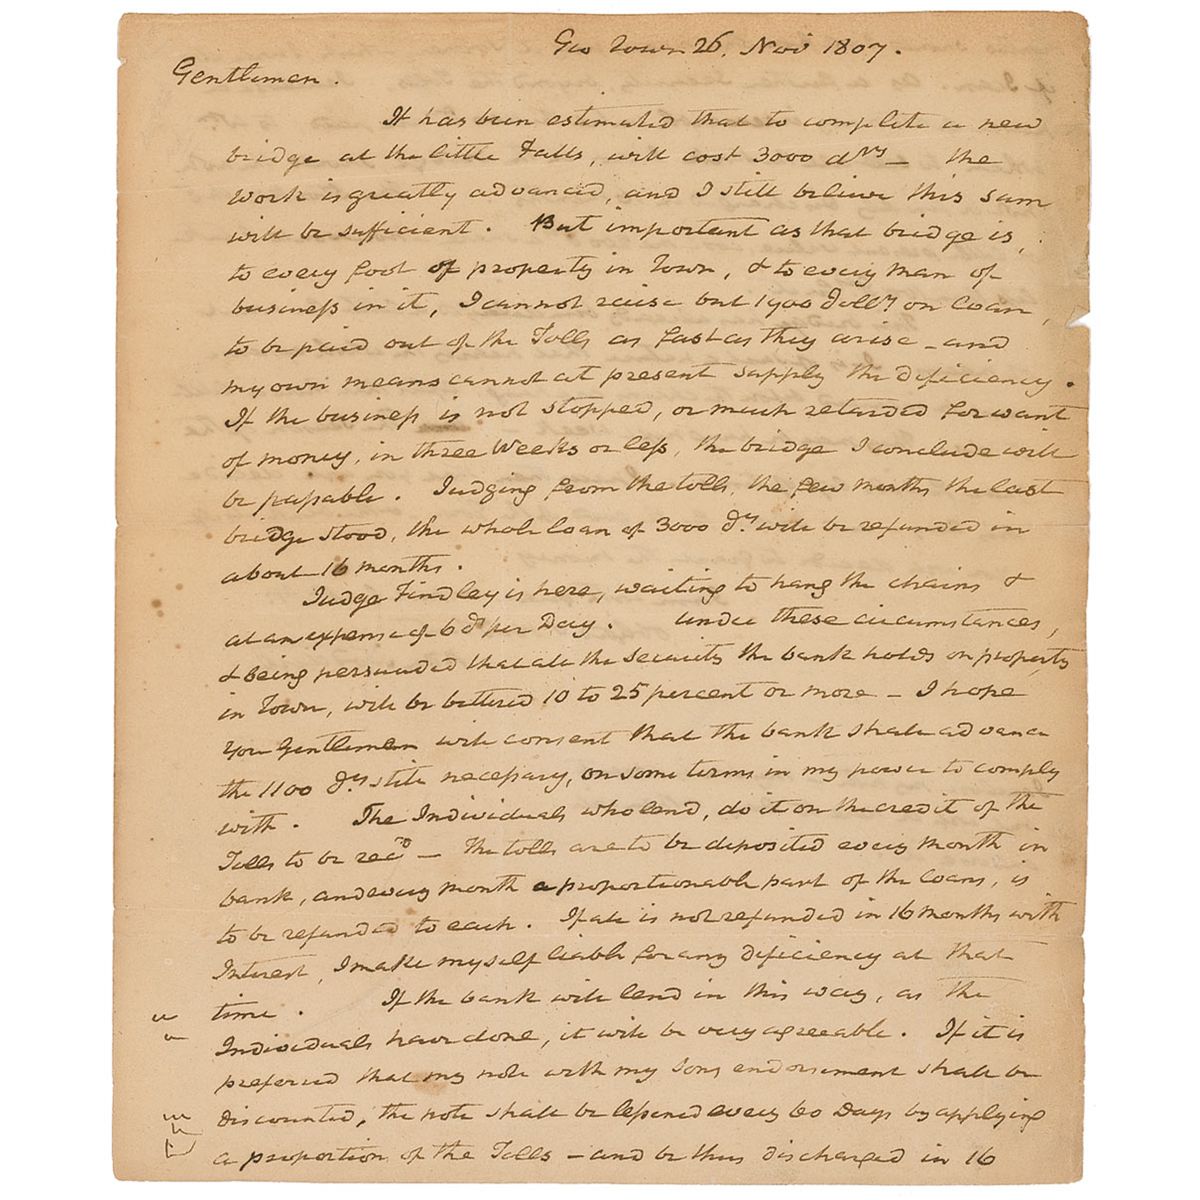 Geo Town 26, Nov 1807.
Gentlemen.
It has been estimated that to complete a new
bridge at the little Falls, will cost 3000 drs — the
work is greatly advanced, and I still believe this sum
will be sufficient. But important as that bridge is,
to every foot of property in Town, & to every man of
business in it, I cannot raise but 1900 dollrs on loan,
to be paid out of the Tolls as fast as they arise — and
my own means cannot at present supply the deficiency.
If the business is not stopped, or much retarded for want
of money, in three Weeks or less, the bridge I conclude will
be passable. Judging from the tolls, the few months the last
bridge stood, the whole loan of 3000 drs will be refunded in
about 16 months.
Judge Findley is here, waiting to hang the chains &
at an expense of 6 ds per Day. Under these circumstances,
& being persuaded that all the security the bank holds on property
in Town, will be bettered 10 to 25 percent or more — I hope
you Gentlemen will consent that the bank shall advance
the 1100 drs still necessary, on some terms in my power to comply
with. The Individuals who lend, do it on the credit of the
Tolls to be recd — The tolls are to be deposited every month in
bank, and every month a proportionable part of the loans, is
to be refunded to each. If all is not refunded in 16 months with
Interest, I make myself liable for any deficiency at that
time. If the bank will lend in this way, as the
Individuals have done, it will be very agreeable. If it is
preferred that my note with my sons endorsement shall be
discounted, the note shall be lessened every 60 Days by applying
a proportion of the Tolls — and be thus discharged in 16